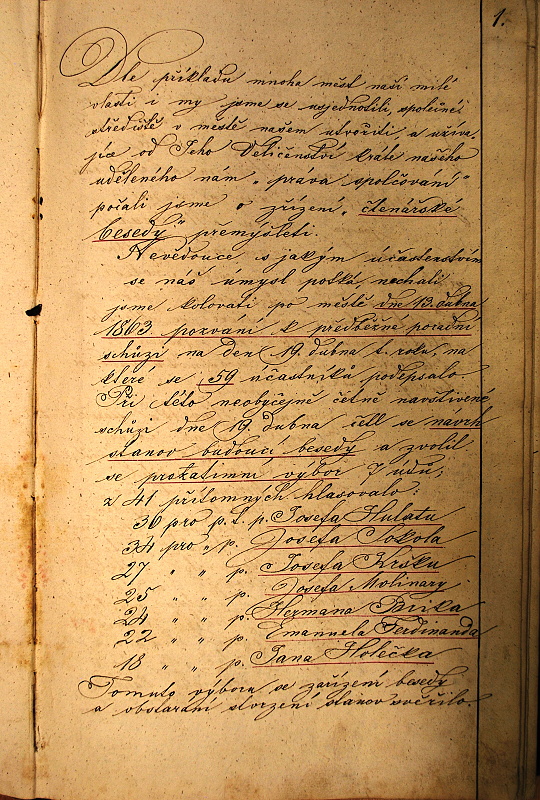 1.
Dle příkladu mnoha měst naší milé
vlasti i my jsme se usjednotili, společné
středistě v městě našem utvořiti, a užíva,
jíce od Jeho Veličenství krále našeho
uděleného nám „práva spolčování"
počali jsme o zřízení „čtenářské
besedy" přemýšleti.
Nevědouce s jakým účastenstvím
se náš úmysl potká, nechali
jsme kolovati po městě dne 13. dubna
1863 pozvání k předběžné poradní
schůzi na den 19. dubna t. roku, na
které se 59 účastníků podepsalo.
Při této neobyčejně četně navštívené
schůzi dne 19. dubna četl se návrh
stanov budoucí besedy a zvolil
se prozatimní výbor 7 údů;
z 41 přítomných hlasovalo:
36 pro p. t. p. Josefa Hulatu
34 pro „ p. Josefa Sokola
27 „ „ p. Josefa Kršku
25 „ „ p. Josefa Molinary
24 „ „ p. Heřmana Paříka
22 „ „ p. Emanuela Ferdinanda
18 „ „ p. Jana Holečka
Tomuto výboru se zařízení besedy
a obstarání stvrzení stanov svěřilo.